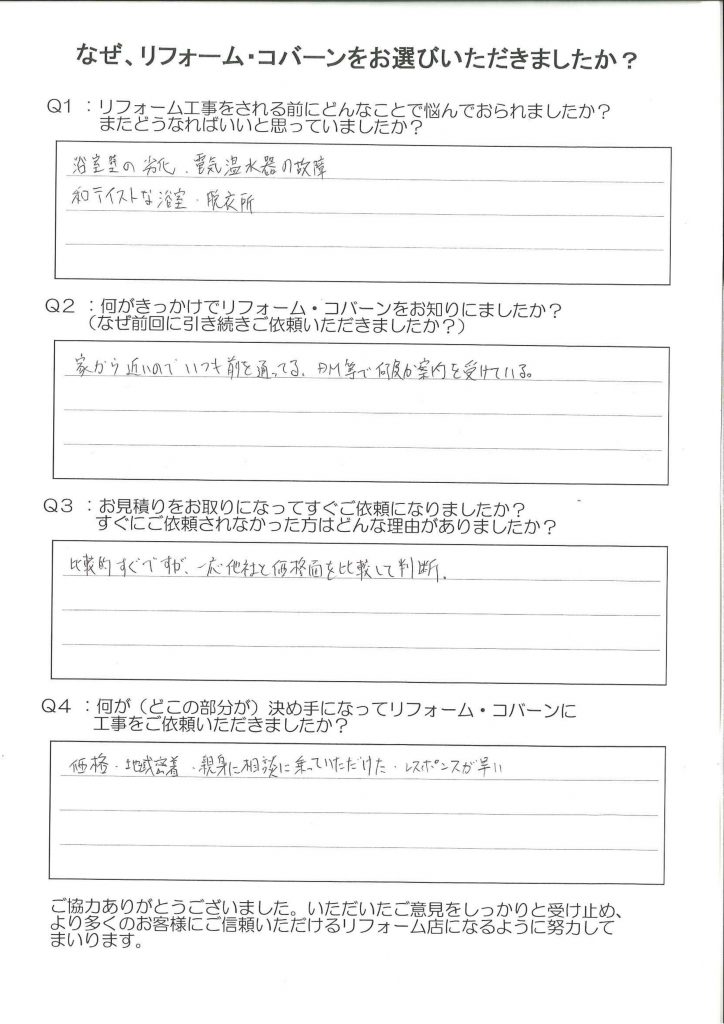 なぜ、リフォーム・コバーンをお選びいただきましたか？
Q1 ：リフォーム工事をされる前にどんなことで悩んでおられましたか？
またどうなればいいと思っていましたか？
浴室壁の劣化、電気温水器の故障
和テイストな浴室・脱衣所
Q2 ：何がきっかけでリフォーム・コバーンをお知りにましたか？
（なぜ前回に引き続きご依頼いただきましたか？）
家から近いのでいつも前を通ってる、DM等で何度か案内を受けている。
Q3 ：お見積りをお取りになってすぐご依頼になりましたか？
すぐにご依頼されなかった方はどんな理由がありましたか？
比較的すぐですが、一応他社と価格面を比較して判断。
Q4 ：何が（どこの部分が）決め手になってリフォーム・コバーンに
工事をご依頼いただきましたか？
価格・地域密着・親身に相談に乗っていただけた・レスポンスが早い
ご協力ありがとうございました。いただいたご意見をしっかりと受け止め、
より多くのお客様にご信頼いただけるリフォーム店になるように努力して
まいります。